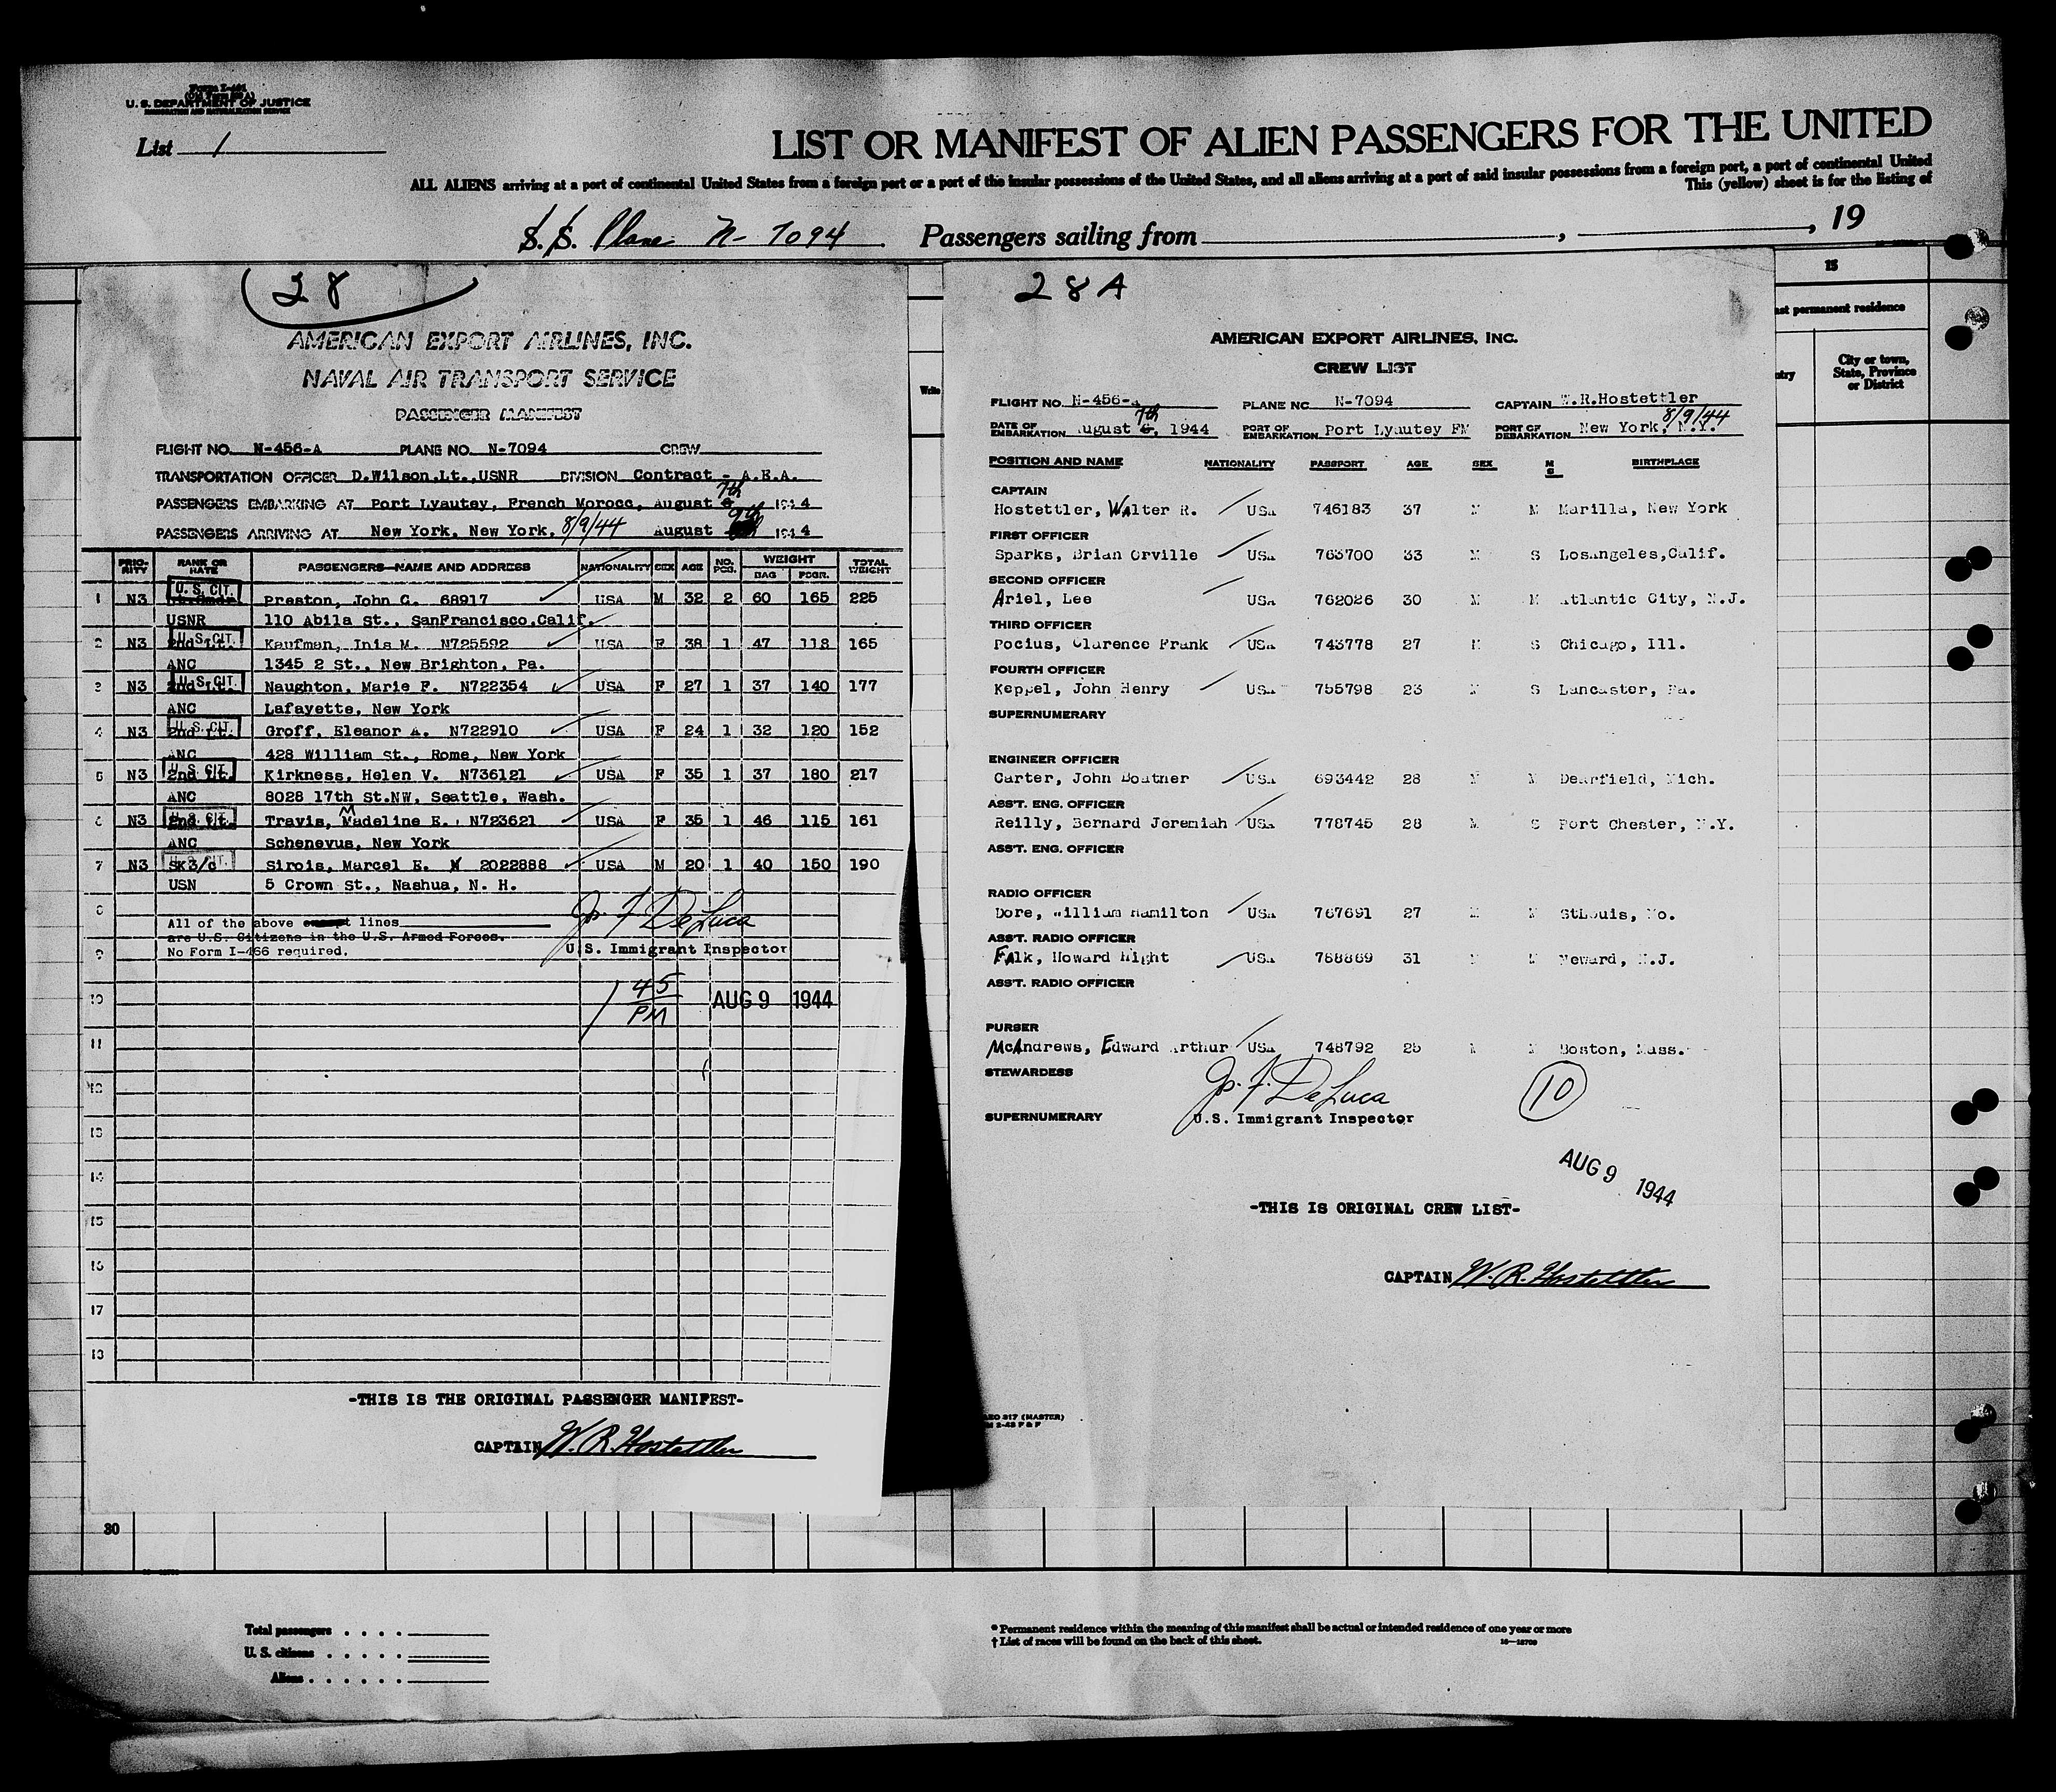 U. S. DEPARTMENT OF JUSTICE
IMMIGRATION AND NATURALIZATION SERVICE
List 1
LIST OR MANIFEST OF ALIEN PASSENGERS FOR THE UNITED
ALL ALIENS arriving at a port of continental United States from a foreign port or a port of the insular possessions of the United States, and all aliens arriving at a port of said insular possessions from a foreign port, a port of continental United
This (yellow) sheet is for the listing of
S.S. Plane N-7094 Passengers sailing from , , 19
28
AMERICAN EXPORT AIRLINES, INC.
NAVAL AIR TRANSPORT SERVICE
PASSENGER MANIFEST
FLIGHT NO. N-456-A PLANE NO. N-7094 CREW
TRANSPORTATION OFFICER D.Wilson,Lt.,USNR DIVISION Contract - A.E.A.
PASSENGERS EMBARKING AT Port Lyautey, French Morocc, August 7th 1944
PASSENGERS ARRIVING AT New York, New York, 8/9/44 August 9th 1944
PRIO-RITY RANK OR RATE PASSENGERS—NAME AND ADDRESS NATIONALITY SEX AGE NO. PCS. WEIGHT BAG PSGR. TOTAL WEIGHT
1 N3 U. S. CIT. Preston, John C. 68917 USA M 32 2 60 165 225
USNR 110 Abila St., SanFrancisco,Calif.
2 N3 2nd Lt. U. S. CIT. Kaufman, Inis M. N725592 USA F 38 1 47 118 165
ANC 1345 2 St., New Brighton, Pa.
3 N3 2nd Lt. U. S. CIT. Naughton, Marie F. N722354 USA F 27 1 37 140 177
ANC Lafayette, New York
4 N3 2nd Lt. U. S. CIT. Groff, Eleanor A. N722910 USA F 24 1 32 120 152
ANC 428 William St., Rome, New York
5 N3 2nd Lt. U. S. CIT. Kirkness, Helen V. N736121 USA F 35 1 37 180 217
ANC 8028 17th St.NW, Seattle, Wash.
6 N3 2nd Lt. U. S. CIT. Travis, Madeline E. N723621 USA F 35 1 46 115 161
ANC Schenevus, New York
7 N3 SK3/c U. S. CIT. Sirois, Marcel E. 2022888 USA M 20 1 40 150 190
USN 5 Crown St., Nashua, N. H.
8
All of the above except lines
are U.S. Citizens in the U.S. Armed Forces.
9 No Form I-466 required.
Jos. F. DeLuca
U.S. Immigrant Inspector
10 1 45 PM AUG 9 1944
11
12
13
14
15
16
17
18
-THIS IS THE ORIGINAL PASSENGER MANIFEST-
CAPTAIN W. R. Hostettler
28A
AMERICAN EXPORT AIRLINES, INC.
CREW LIST
FLIGHT NO. N-456-A PLANE NO. N-7094 CAPTAIN W.R.Hostettler
DATE OF EMBARKATION August 7th, 1944 PORT OF EMBARKATION Port Lyautey FM PORT OF DEBARKATION New York, N.Y. 8/9/44
POSITION AND NAME NATIONALITY PASSPORT AGE SEX M S BIRTHPLACE
CAPTAIN
Hostettler, Walter R. USA 746183 37 M M Marilla, New York
FIRST OFFICER
Sparks, Brian Orville USA 763700 33 M S LosAngeles,Calif.
SECOND OFFICER
Ariel, Lee USA 762026 30 M M Atlantic City, N.J.
THIRD OFFICER
Pocius, Clarence Frank USA 743778 27 M S Chicago, Ill.
FOURTH OFFICER
Keppel, John Henry USA 755798 23 M S Lancaster, Pa.
SUPERNUMERARY
ENGINEER OFFICER
Carter, John Boatner USA 693442 28 M M Dearfield, Mich.
ASS'T. ENG. OFFICER
Reilly, Bernard Jeremiah USA 778745 28 M S Port Chester, N.Y.
ASS'T. ENG. OFFICER
RADIO OFFICER
Dore, William Hamilton USA 767691 27 M M StLouis, Mo.
ASS'T. RADIO OFFICER
Falk, Howard Hight USA 768869 31 M M Neward, N.J.
ASS'T. RADIO OFFICER
PURSER
McAndrews, Edward Arthur USA 748792 25 M M Boston, Mass.
STEWARDESS
Jos. F. DeLuca 10
SUPERNUMERARY U.S. Immigrant Inspector
AUG 9 1944
-THIS IS ORIGINAL CREW LIST-
CAPTAIN W. R. Hostettler
317 (MASTER)
15
permanent residence
City or town, State, Province or District
Write
30
Total passengers
U. S. citizens
Aliens
* Permanent residence within the meaning of this manifest shall be actual or intended residence of one year or more
† List of races will be found on the back of this sheet.